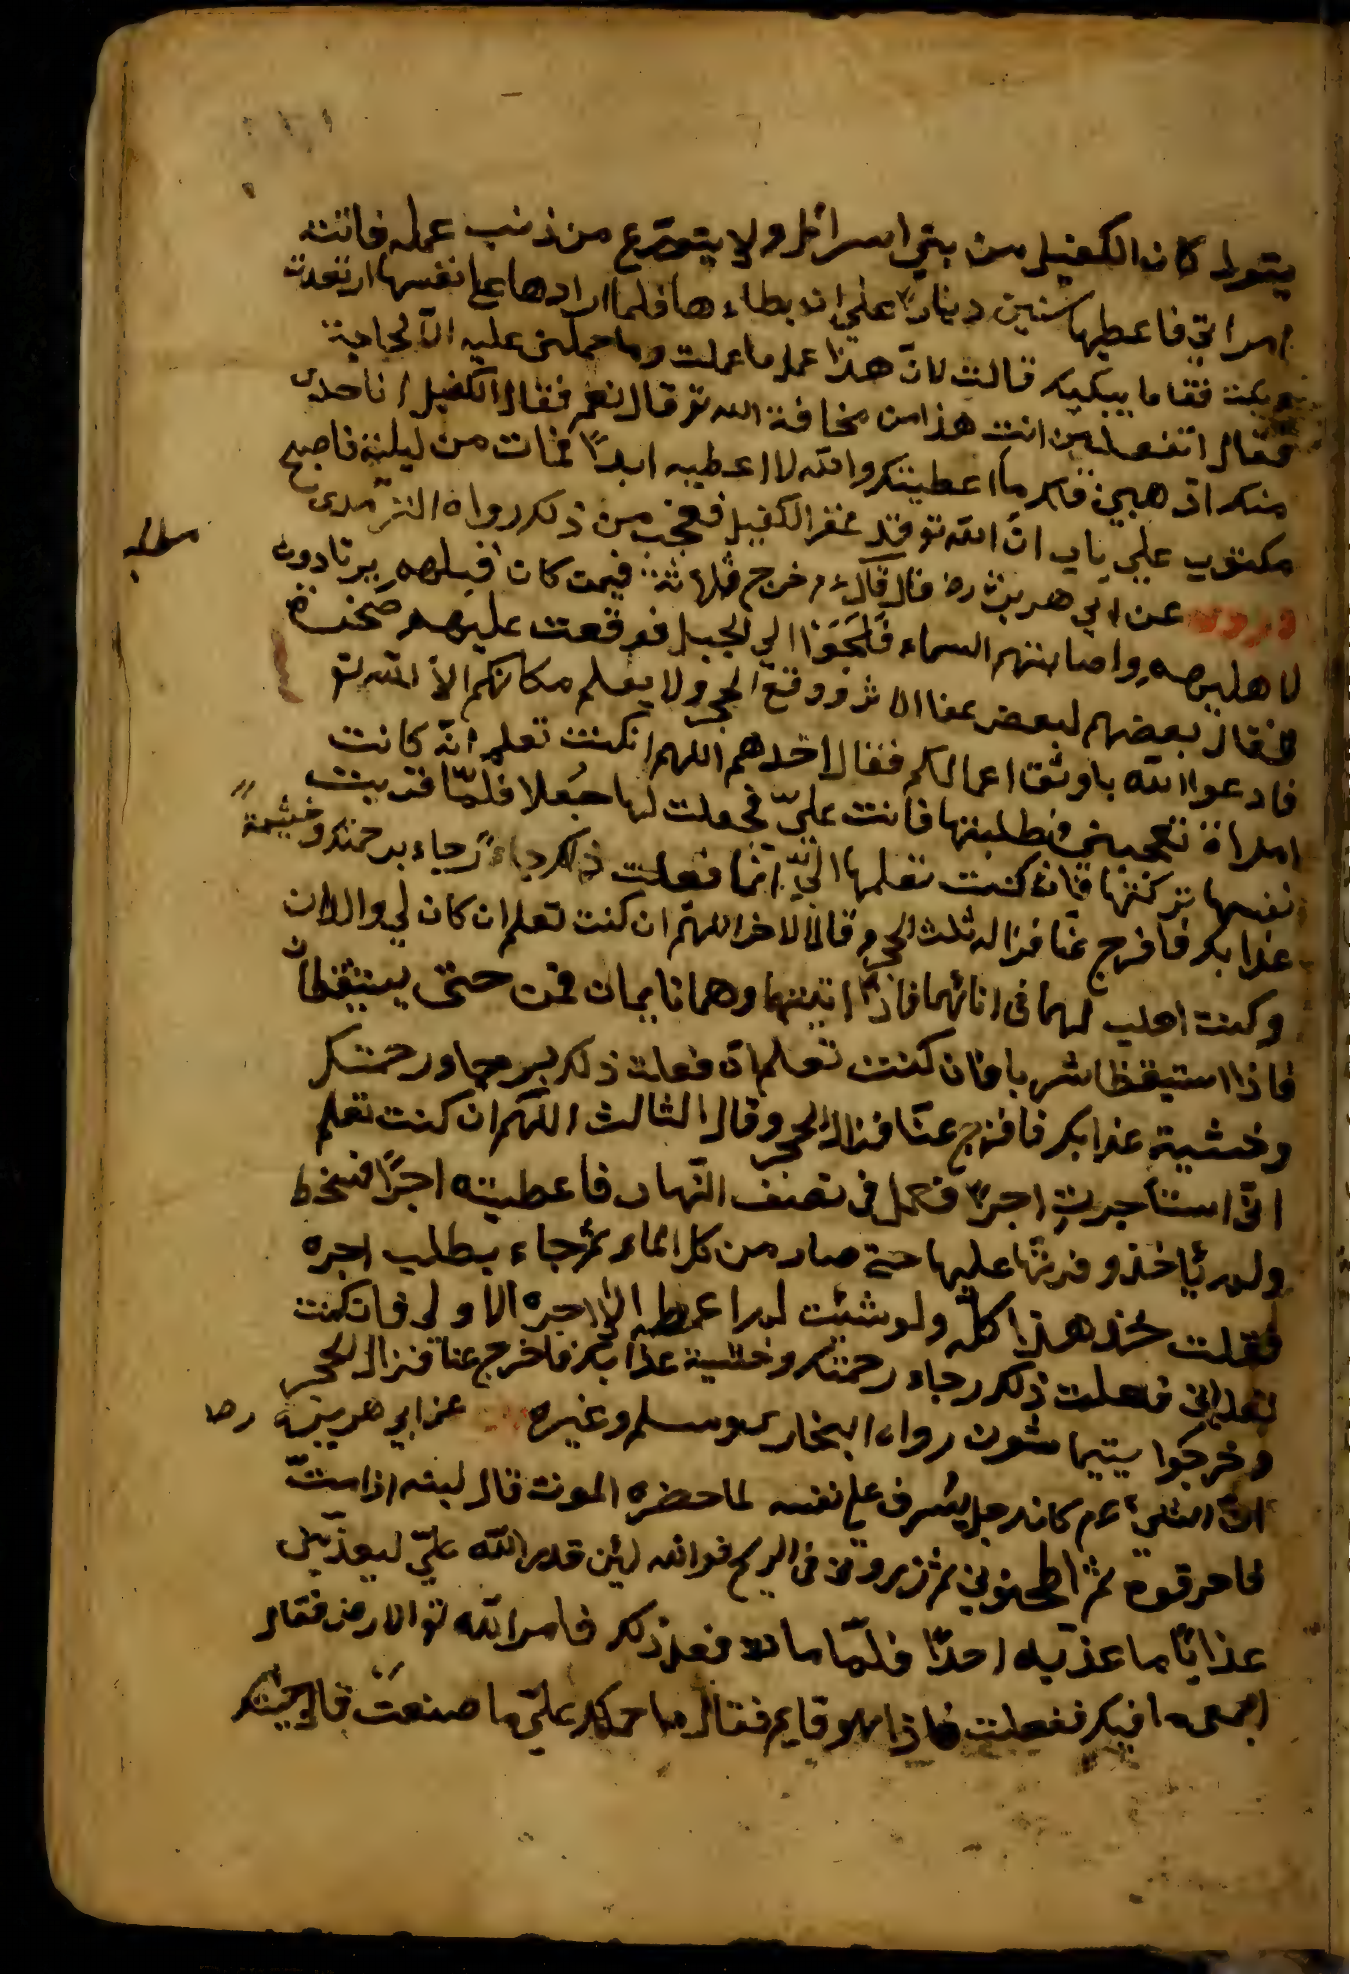 يتول كان الكفيل من بني اسرائل ولا يتورع من ذنب عمله فاتت
امراتي فاعطيها ستين دينارًا على ان يطاء ها فلما ارادها على نفسها ارتعدت
وبكت فقا ما يبكيك قالت لان هذا عمل ما عملت وما حملني عليه الا الحاجة
فقال اتفعلين انت هذا من مخافة الله تو قال نعم فقال الكفيل انا احدى
منك اذهبي فلك ما اعطيتك والله لا اعطيبه ابدًا فمات من ليلته فاصبح
مكتوب على باب ان الله تو قد غفر الكفيل فعجب من ذلك رواه الترمدى
عن ابي هريرة رض قال قال عم خرج ثلاثة فيمن كان قبلهم يرتادون
لاهليهم واصابتهم السماء فلجوا الي الجبل فوقعت عليهم صخرة
فقال بعضهم لبعض عفا الاثر ووقع الحجر ولا يعلم مكانكم الا الله تو
فادعوا الله باوثق اعمالكم فقال احدهم اللهم ان كنت تعلم انه كانت
امراة تعجبني فطلبتها فابت عليّ فجعلت لها جُعلا فلمّا قربت
نفسها تركتها فان كنت تعلم انيّ انما فعلت ذلك رجاء رحمتك وخشية
عذابك فافرج عنّا فزال ثلث الحجر وقال الاخر اللهمّ ان كنت تعلم ان كان لي والدان
وكنت احلب لهما فى انائهما فاذا اتيتهما وهما نايمان قمت حتى يستيقظان
فاذا استيقظا شربا فان كنت تعلم ان فعلت ذلك رجاء رحمتك
وخشية عذابك فافرج عنّا فزال الحجر وقال الثالث اللهم ان كنت تعلم
انى استأجرت اجرًا فعمل فى نصف النّهار فاعطيته اجرًا فسخط
ولم يأخذ وفرتها عليها حتى صار من كل الماء ثم جاء يطلب اجره
فقلت خذ هذا كلّه ولو شئت لم اعطه الا اجره الاولى فان كنت
تعلم انى فعلت ذلك رجاء رحمتك وخشية عذابك فاخرج عنا فزال الحجر
وخرجوا يتيماشون رواه البخارى ومسلم وغيره عن ابي هريرة رض
انّ النّبيّ عم كان رجل يسرف على نفسه لما حضره الموت قال لبنه اذا متّ
فاحرقوه ثمّ اطحنوني ثمّ زرونى فى الريح فوالله لئن قدر الله عليّ ليعذّبنى
عذابًا ما عذبه احدًا فلمّا مات فعل ذلك فامر الله تو الارض فقال
اجمعى ما فيك ففعلت فاذا هو قايم فقال ما حملك على ما صنعت قال خشيتك